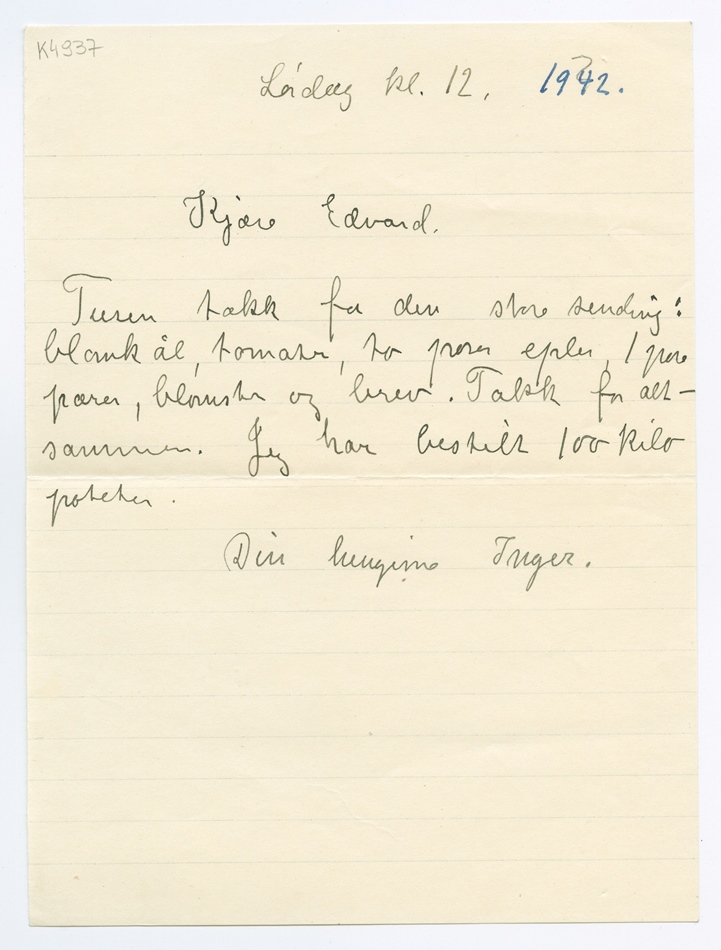 K4937
Lördag kl. 12, 1942.
Kjære Edvard.
Tusen takk for den store sending:
blomkål, tomater, to poser epler, 1 pose
pærer, blomster og brev. Takk for alt-
sammen. Jeg har bestilt 100 kilo
poteter.
Din hengivne Inger.